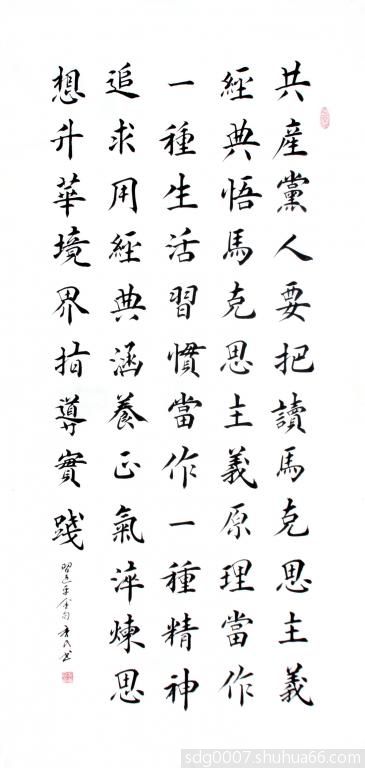 共產黨人要把讀馬克思主義
經典悟馬克思主義原理當作
一種生活習慣當作一種精神
追求用經典涵養正氣淬煉思
想升華境界指導實踐
習近平金句
sdg0007.shuhua66.com